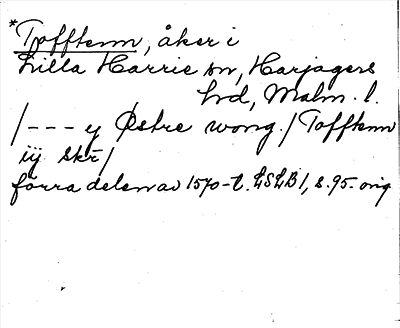 *Tofftenn, åker i
Lilla Harrie sn, Harjagers
hd, Malm. l.
/--- y Østre wong./Tofftenn
iij skr/
förra delen av 1570-t. LSLB 1, s. 95. orig